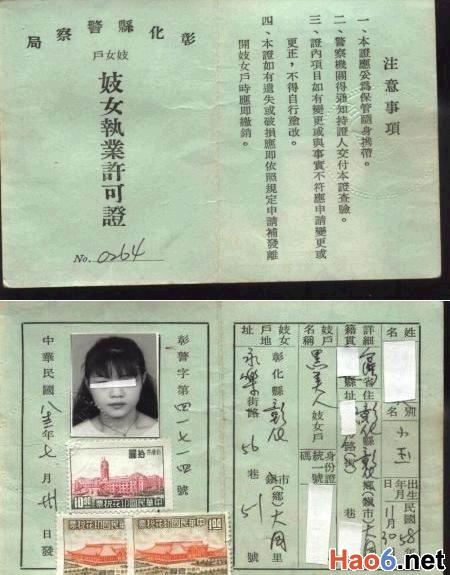 彰化縣警察局
妓女戶
妓女執業許可證
No. 0264
注意事項
一、本證應妥為保管隨身攜帶。
二、警察機關得通知持證人交付本證查驗。
三、證內項目如有變更或與事實不符應申請變更或
更正，不得自行塗改。
四、本證如有遺失或破損應即依照規定申請補發離
開妓女戶時應即繳銷。
姓名
別
出生年月日
民國58年11月30
詳細籍貫
省
縣
住址
彰化縣
鄉(鎮市)大同
路(街)
巷
妓女戶名稱
黑美人
妓女戶
身份證統一號碼
妓女戶地址
彰化縣彰化
市鎮(鄉)
大同里
永樂街路56巷51號
彰警字第四一七一四號
中華民國八三年七月卅日發
中華民國印花稅票
拾圓
10.00
中華民國印花稅票
1.00
Hao6.net